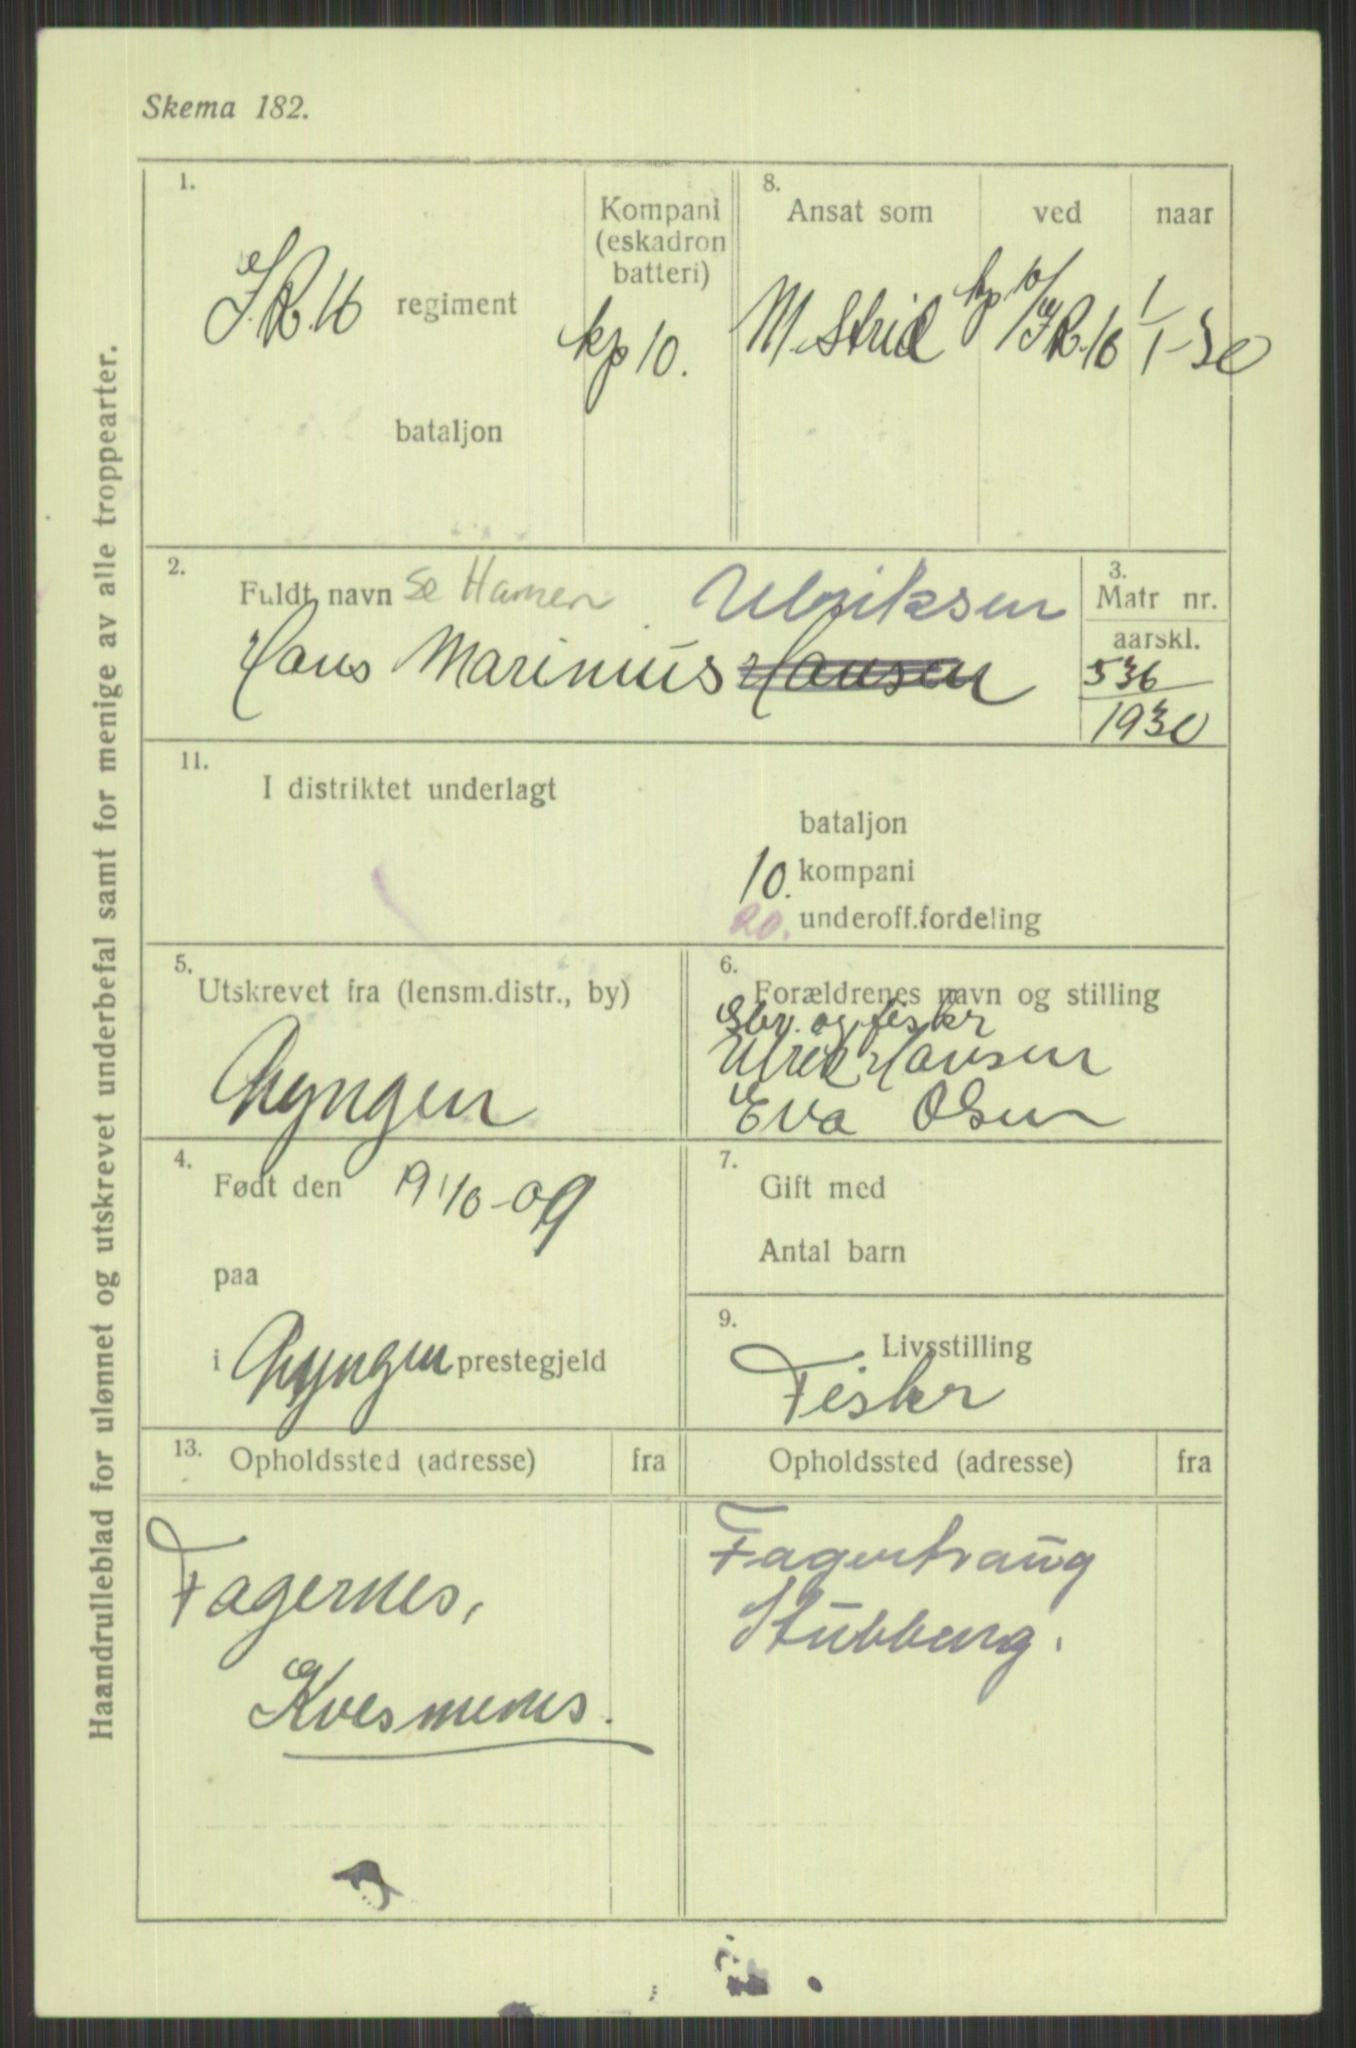 Skema 182.
Haandrulleblad for ulønnet og utskrevet underbefal samt for menige av alle troppearter.
1.
I.R. 16 regiment
bataljon
Kompani
(eskadron
batteri)
kp 10.
8.
Ansat som ved naar
M. Strid kp 10/I.R. 16 1/1-30
2.
Fuldt navn Se Hansen Ulriksen
Hans Marinius Hansen
3.
Matr nr.
aarskl.
536
1930
11.
I distriktet underlagt
bataljon
10. kompani
20. underoff.fordeling
5.
Utskrevet fra (lensm.distr., by)
Lyngen
6.
Forældrenes navn og stilling
Gbr. og fisker
Ulrik Hansen
Eva Olsen
4.
Født den 19/10-09
paa
i Lyngen prestegjeld
7.
Gift med
Antal barn
9.
Livsstilling
Fisker
13.
Opholdssted (adresse) fra
Fagernes,
Kvesmenes.
Opholdssted (adresse) fra
Stubbeng.